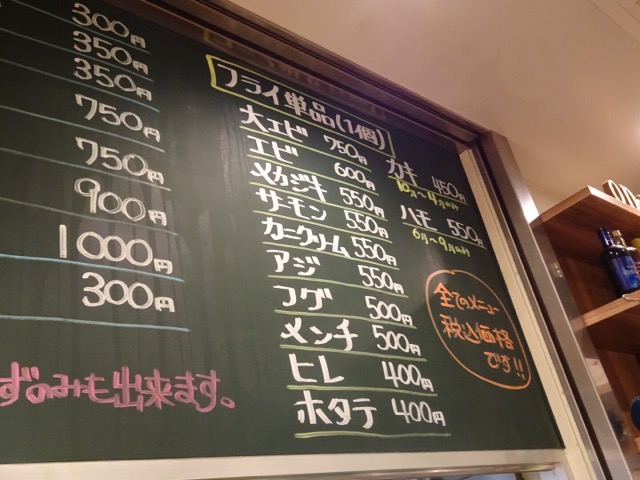 300円
350円
350円
750円
750円
900円
1000円
300円
ずのみも出来ます。
フライ単品(1個)
大エビ 750円
エビ 600円
メカジキ 550円
サーモン 550円
カニクリーム 550円
アジ 550円
フグ 500円
メンチ 500円
ヒレ 400円
ホタテ 400円
カキ 450円
10月～4月
ハモ 550円
6月～9月
全てのメニュー
税込価格
です!!